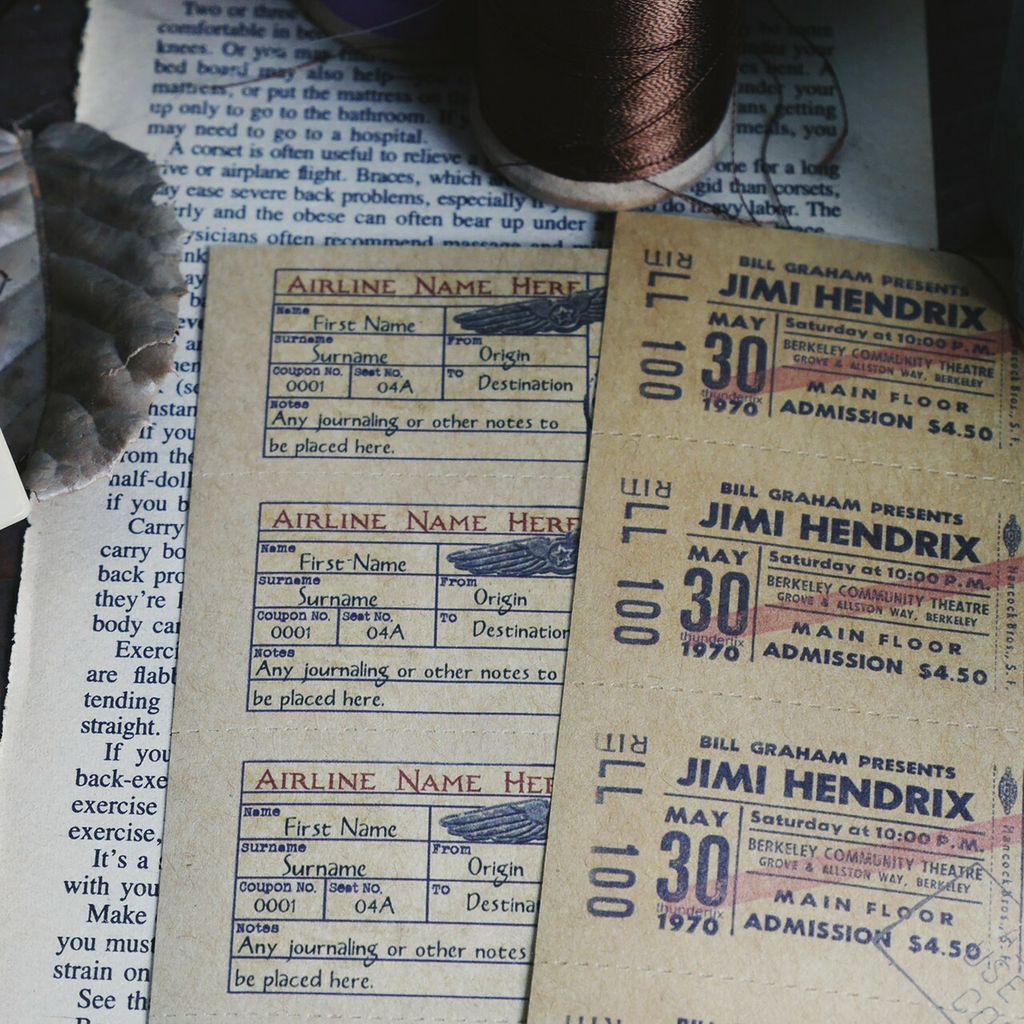 Two or three
comfortable in be
knees. Or you may
bed board may also help
mattress, or put the mattress on
under your
up only to go to the bathroom. If
ans getting
may need to go to a hospital.
meals, you
A corset is often useful to relieve a
one for a long
ive or airplane flight. Braces, which a
gid than corsets,
ay ease severe back problems, especially if y
do heavy labor. The
rly and the obese can often bear up under
ysicians often recommend massage and
if you
rom the
half-doll
if you b
Carry
carry bo
back pro
they're
body ca
Exerci
are flabb
tending
straight.
If you
back-exe
exercise
exercise,
It's a
with you
Make
you must
strain on
See th
AIRLINE NAME HERE
Name
First Name
Surname
Surname
From
Origin
Coupon No.
0001
Seat No.
04A
To
Destination
Notes
Any journaling or other notes to
be placed here.
AIRLINE NAME HERE
Name
First Name
Surname
Surname
From
Origin
Coupon No.
0001
Seat No.
04A
To
Destination
Notes
Any journaling or other notes to
be placed here.
AIRLINE NAME HER
Name
First Name
Surname
Surname
From
Origin
Coupon No.
0001
Seat No.
04A
To
Destina
Notes
Any journaling or other notes
be placed here.
RIT
LL
100
BILL GRAHAM PRESENTS
JIMI HENDRIX
MAY
30
thundertix
1970
Saturday at 10:00 P.M.
BERKELEY COMMUNITY THEATRE
GROVE & ALLSTON WAY, BERKELEY
MAIN FLOOR
ADMISSION $4.50
RIT
LL
100
BILL GRAHAM PRESENTS
JIMI HENDRIX
MAY
30
thundertix
1970
Saturday at 10:00 P.M.
BERKELEY COMMUNITY THEATRE
GROVE & ALLSTON WAY, BERKELEY
MAIN FLOOR
ADMISSION $4.50
Hancock Bros., S. F.
RIT
LL
100
BILL GRAHAM PRESENTS
JIMI HENDRIX
MAY
30
thundertix
1970
Saturday at 10:00 P.M.
BERKELEY COMMUNITY THEATRE
GROVE & ALLSTON WAY, BERKELEY
MAIN FLOOR
ADMISSION $4.50
Hancock Bros., S. F.